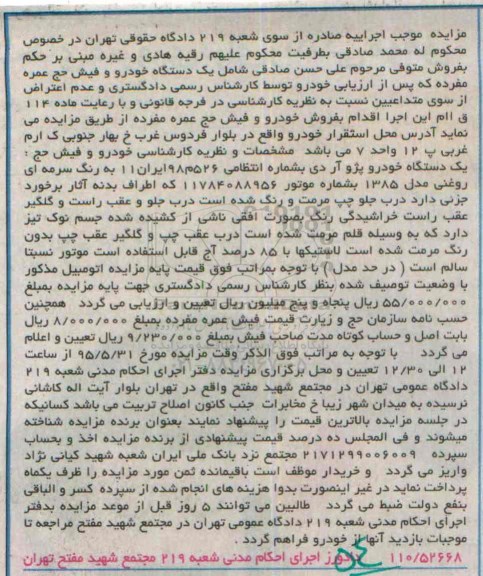 مزایده موجب اجراییه صادره از سوی شعبه ۲۱۹ دادگاه حقوقی تهران در خصوص
محکوم له محمد صادقی بطرفیت محکوم علیهم رقیه هادی و غیره مبنی بر حکم
بفروش متوفی مرحوم علی حسن صادقی شامل یک دستگاه خودرو و فیش حج عمره
مفرده که پس از ارزیابی خودرو توسط کارشناس رسمی دادگستری و عدم اعتراض
از سوی متداعبین نسبت به نظریه کارشناسی در فرجه قانونی و با رعایت ماده ۱۱۴
ق اام این اجرا اقدام بفروش خودرو و فیش حج عمره مفرده از طریق مزایده می
نماید آدرس محل استقرار خودرو واقع در بلوار فردوس غرب خ بهار جنوبی ک ارم
غربی پ ۱۲ واحد ۷ می باشد مشخصات و نظریه کارشناسی خودرو و فیش حج :
یک دستگاه خودرو پژو آر دی بشماره انتظامی ۵۲۶م۹۸ایران۱۱ به رنگ سرمه ای
روغنی مدل ۱۳۸۵ بشماره موتور ۱۱۷۸۴۰۸۸۹۵۶ که اطراف بدنه آثار برخورد
جزنی دارد درب جلو چپ مرمت و رنگ شده است درب جلو و عقب راست و گلگیر
عقب راست خراشیدگی رنگ بصورت افقی ناشی از کشیده شده جسم نوک تیز
دارد که به وسیله قلم مرمت شده است درب عقب چپ و گلگیر عقب چپ بدون
رنگ مرمت شده است لاستیکها با ۸۵ درصد آج قابل استفاده است موتور نسبتا
سالم است ( در حد مدل ) با توجه بمراتب فوق قیمت پایه مزایده اتومبیل مذکور
با وضعیت توصیف شده بنظر کارشناس رسمی دادگستری جهت پایه مزایده بمبلغ
۵۵/۰۰۰/۰۰۰ ریال پنجاه و پنج میلیون ریال تعیین و ارزیابی می گردد همچنین
حسب نامه سازمان حج و زیارت قیمت فیش عمره مفرده بمبلغ ۸/۰۰۰/۰۰۰ ریال
بابت اصل و حساب کوتاه مدت صاحب فیش بمبلغ ۹/۲۳۰/۰۰۰ ریال تعیین و اعلام
می گردد با توجه به مراتب فوق الذکر وقت مزایده مورخ ۹۵/۵/۳۱ از ساعت
۱۲ الی ۱۲/۳۰ تعیین و محل برگزاری مزایده دفتر اجرای احکام مدنی شعبه ۲۱۹
دادگاه عمومی تهران در مجتمع شهید مفتح واقع در تهران بلوار آیت اله کاشانی
نرسیده به میدان شهر زیبا خ مخابرات جنب کانون اصلاح تربیت می باشد کسانیکه
در جلسه مزایده بالاترین قیمت را پیشنهاد نمایند بعنوان برنده مزایده شناخته
میشوند و فی المجلس ده درصد قیمت پیشنهادی از برنده مزایده اخذ و بحساب
سپرده ۲۱۷۱۲۹۹۰۰۶۰۰۹ مجتمع نزد بانک ملی ایران شعبه شهید کیانی نژاد
واریز می گردد و خریدار موظف است باقیمانده ثمن مورد مزایده را ظرف یکماه
پرداخت نماید در غیر اینصورت بدوا هزینه های انجام شده از سپرده کسر و الباقی
بنفع دولت ضبط می گردد طالبین می توانند ۵ روز قبل از موعد مزایده بدفتر
اجرای احکام مدنی شعبه ۲۱۹ دادگاه عمومی تهران در مجتمع شهید مفتح مراجعه تا
موجبات بازدید آنها از خودرو فراهم گردد .
۱۱۰/۵۲۶۶۸ دادورز اجرای احکام مدنی شعبه ۲۱۹ مجتمع شهید مفتح تهران